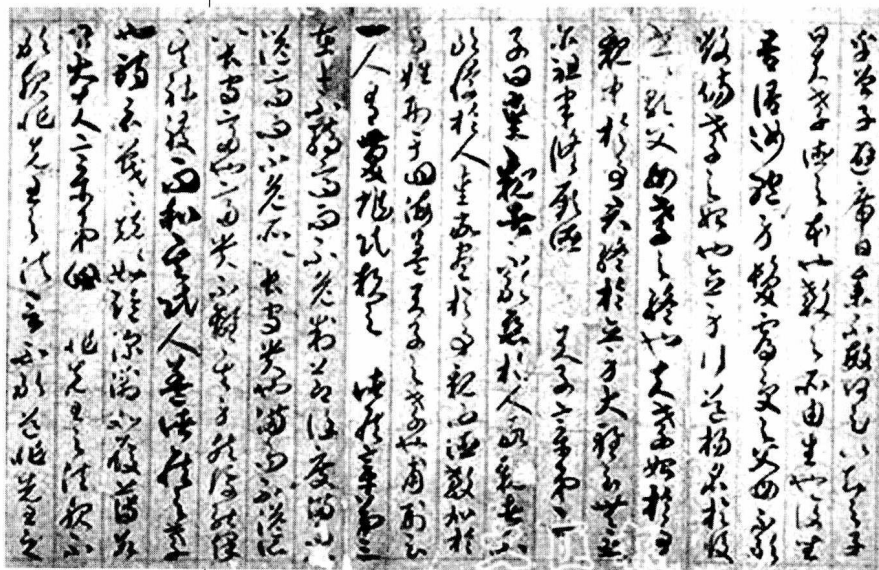 乎曾子避席曰參不敏何足以知之子
曰夫孝德之本也教之所由生也復坐
吾語汝體身髮膚受之父母不敢
毀傷孝之始也立身行道揚名於後
世以顯父母孝之終也夫孝始於事
親中於事君終於立身大雅云無念
爾祖聿脩厥德 天子章第二
子曰愛親者不敢惡於人敬親者不
敢慢於人愛敬盡於事親而德教加於
百姓刑于四海蓋天子之孝也甫刑云
一人有慶兆民賴之 諸侯章第三
在上不驕高而不危制節謹度滿而不
溢高而不危所以長守貴也滿而不溢所
以長守富也富貴不離其身然後能保
其社稷而和其民人蓋諸侯之孝
也詩云戰戰兢兢如臨深淵如履薄冰
卿大夫章第四 非先王之法服不
敢服非先王之法言不敢道非先王之